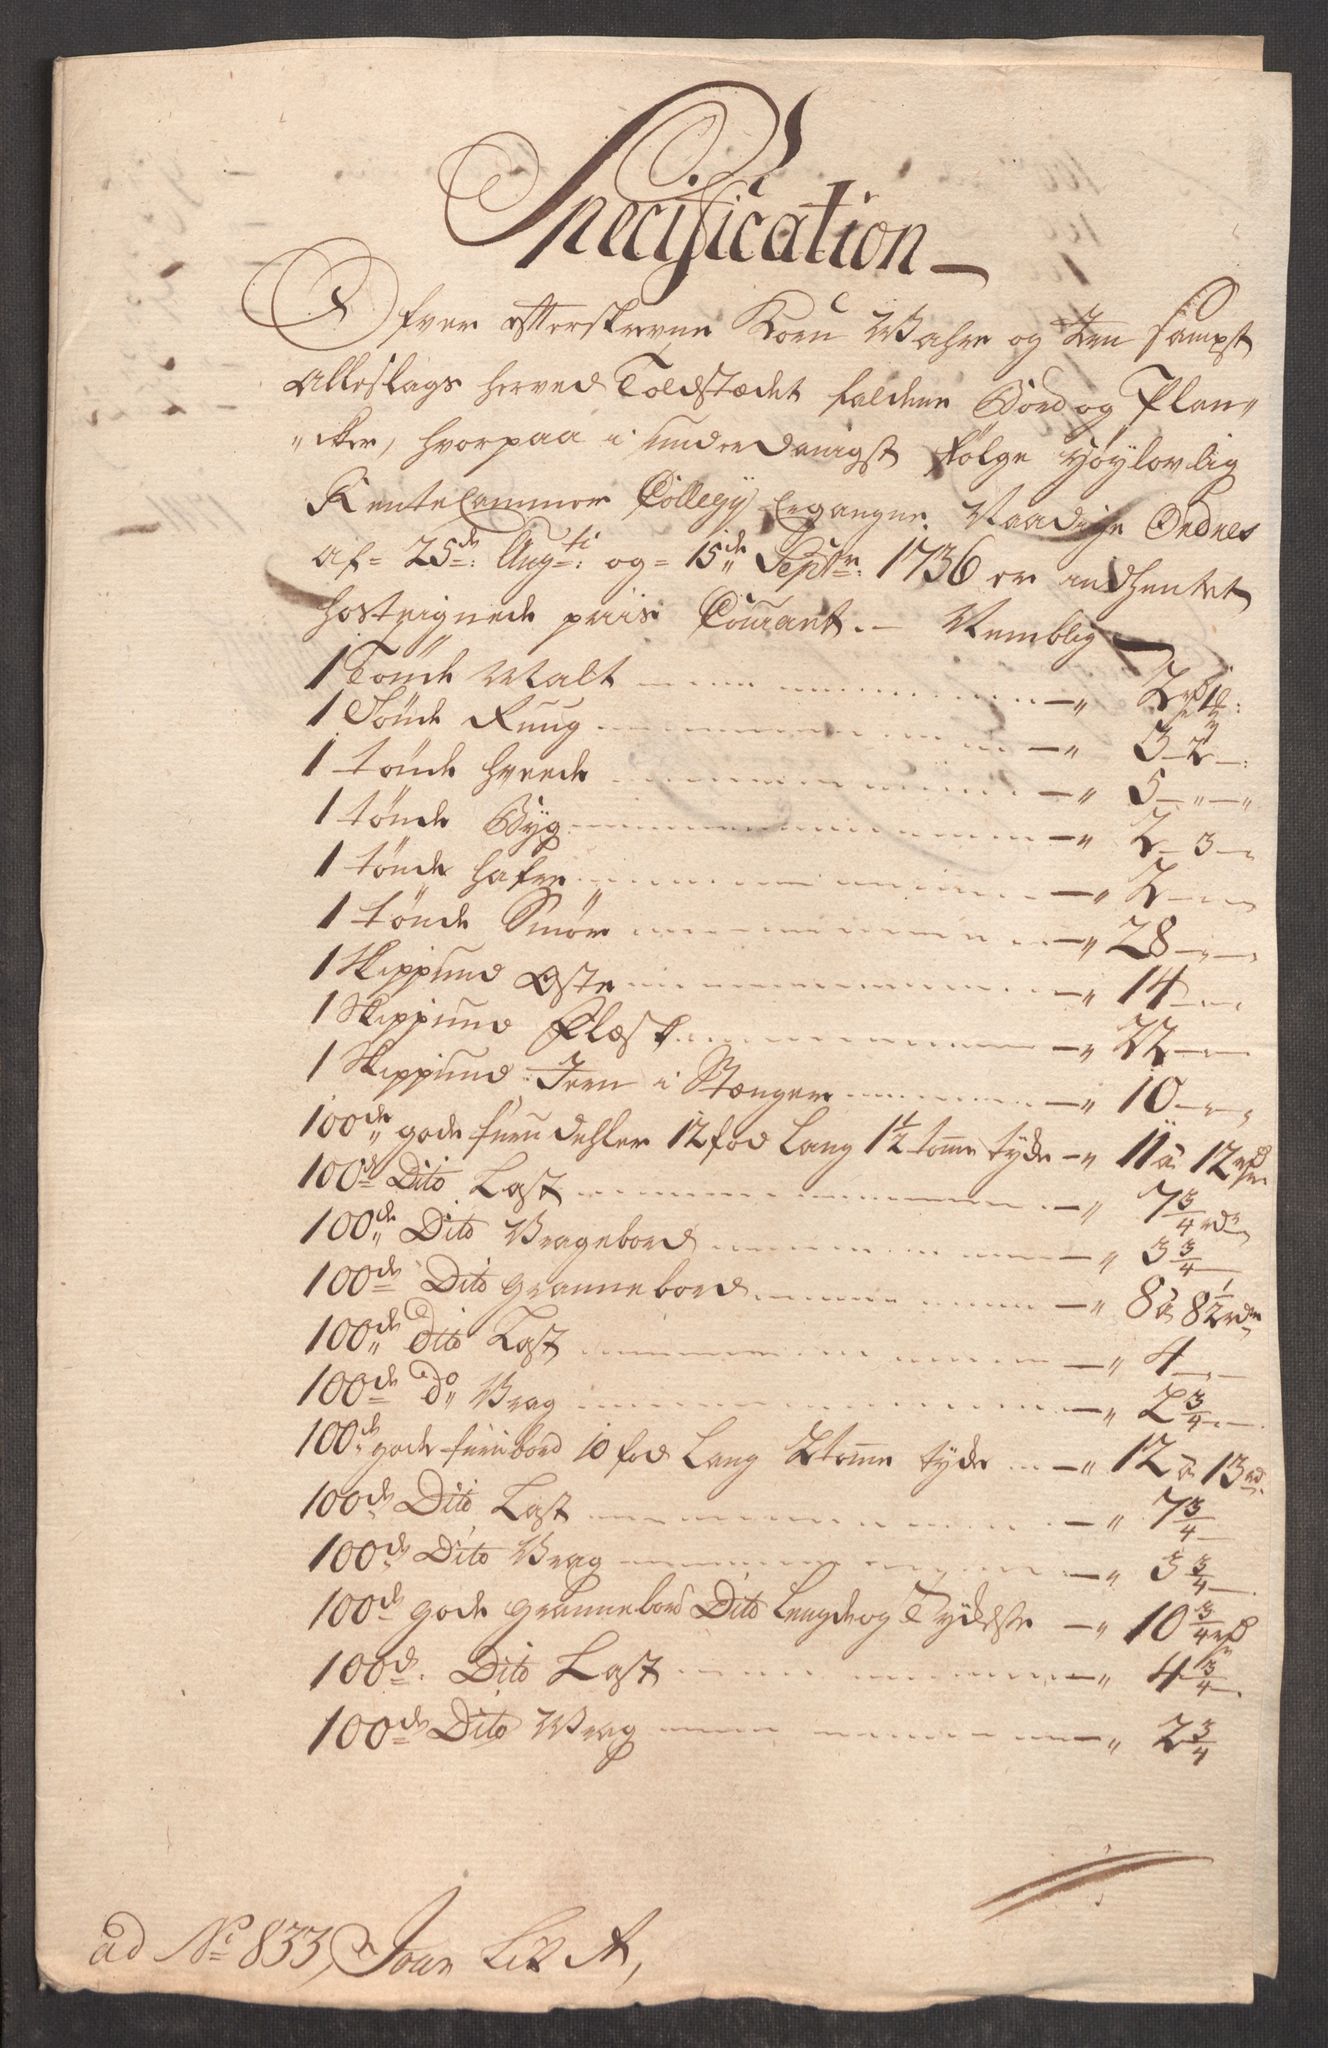 Specification
Ofver efterskrevne Korn Wahre og Jern sampt
Alleslags herved Toldstædet faldene Bord og Plan„
„cker, hvorpaa i underdanigst følge Høylovlig
RenteCammer Collegÿ Ergangne Naadige Ordres
af 25de: Augti: og 15de Septr: 1736 er indhentet
hostegnede priis Courant. Nemblig
1 Tønde Malt 2 rd 1
1 Tønde Ruug 3 - 2 -
1 tønde hvede 5 - „ - „
1 tønde Byg 2 - 3 -
1 tønde hafre 2 - -
1 tønde Smør 28 - -
1 Skippund Oste 14 - -
1 Skippund Flæsk 22 - -
1 Skippund Jern i Stænger 10 - -
100de gode furu dehler 12 fod Lang 1½ tomme tyde 11 à 12 rd
100de Dito Last 7¾ rd
100de Dito Vragebord 3¾
100de Dito grannebord 8 à 8½ rdr
100de Dito Last 4
100de Do Vrag 2¾
100de gode furubord 10 fod Lang 2 tomme tyde 12 à 13 rd
100de Dito Last 7¾
100de Dito Vrag 3¾
100de gode grannebord Dito Lengde og Tydelse 10¾ rd
100de Dito Last 4¾
100de Dito Vrag 2¾
ad No 833, Lit A,